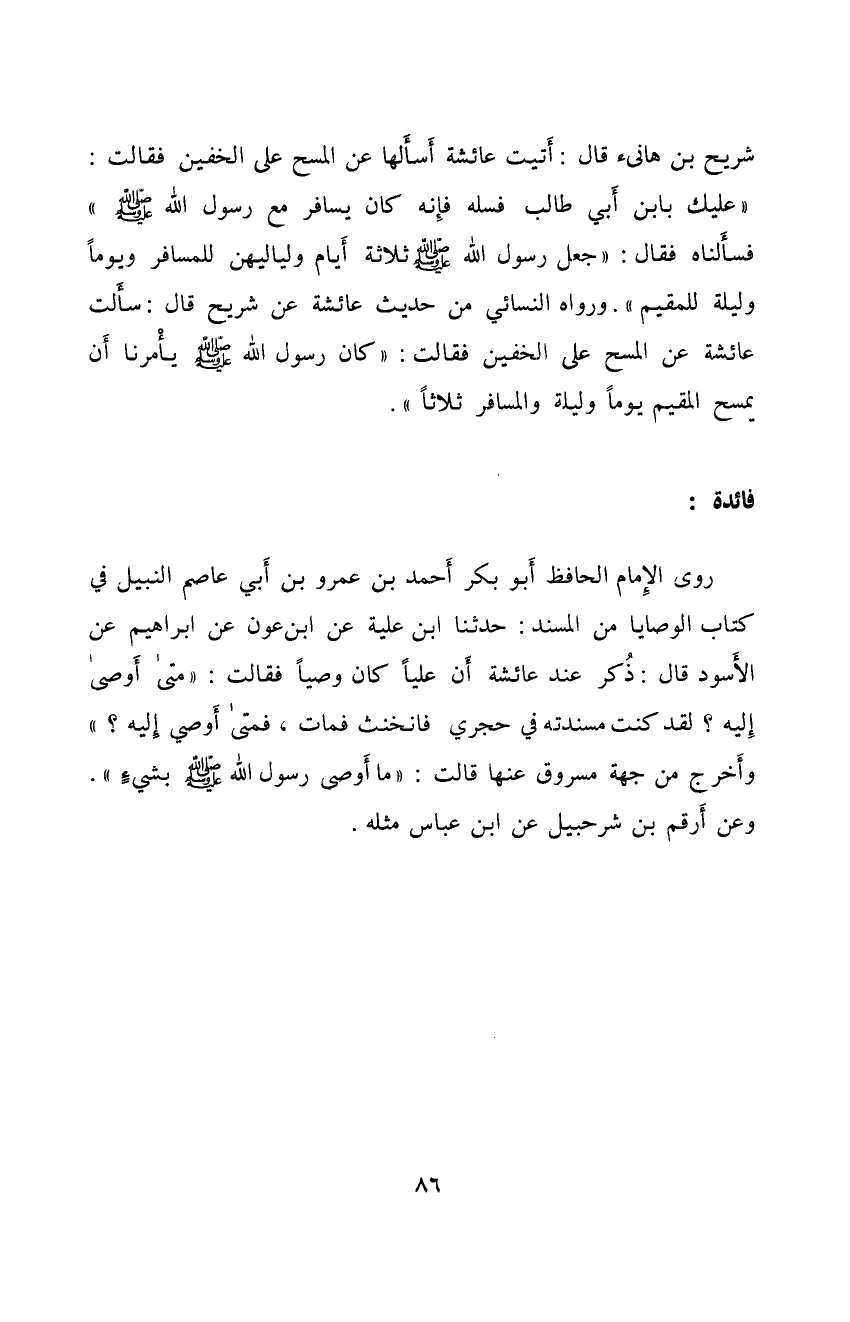 شريح بن هانىء قال : أَتيت عائشة أَسأَلها عن المسح على الخفين فقالت :
« عليك بابن أَبي طالب فسله فإنه كان يسافر مع رسول الله ﷺ »
فسأَلناه فقال : « جعل رسول الله ﷺ ثلاثة أَيام ولياليهن للمسافر ويوماً
وليلة للمقيم » . ورواه النسائي من حديث عائشة عن شريح قال : سأَلت
عائشة عن المسح على الخفين فقالت : « كان رسول الله ﷺ يأْمرنا أَن
يمسح المقيم يوماً وليلة والمسافر ثلاثاً » .
فائدة :
روى الإِمام الحافظ أَبو بكر أَحمد بن عمرو بن أَبي عاصم النبيل في
كتاب الوصايا من المسند : حدثنا ابن علية عن ابن عون عن ابراهيم عن
الأَسود قال : ذُكر عند عائشة أَن علياً كان وصياً فقالت : « متىٰ أَوصىٰ
إِليه ؟ لقد كنت مسندته في حجري فانخنث فمات ، فمتىٰ أَوصي إِليه ؟ »
وأَخرج من جهة مسروق عنها قالت : « ما أَوصى رسول الله ﷺ بشيءٍ » .
وعن أَرقم بن شرحبيل عن ابن عباس مثله .
٨٦